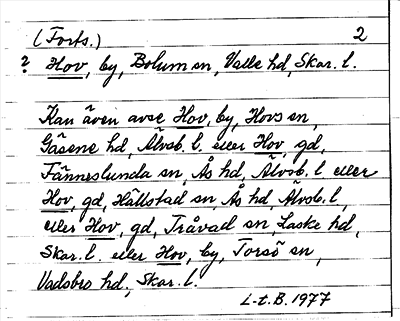 (Forts.) 2
? Hov, by, Bolum sn, Valle hd, Skar. l.
Kan även avse Hov, by, Hovs sn,
Gäsene hd, Älvsb. l. eller Hov, gd,
Fänneslunda sn, Ås hd, Älvsb. l eller
Hov, gd, Hällstad sn, Ås hd, Älvsb. l,
eller Hov, gd, Tråvad sn, Laske hd,
Skar. l. eller Hov, by, Torsö sn,
Vadsbro hd, Skar. l.
L-t. B. 1977